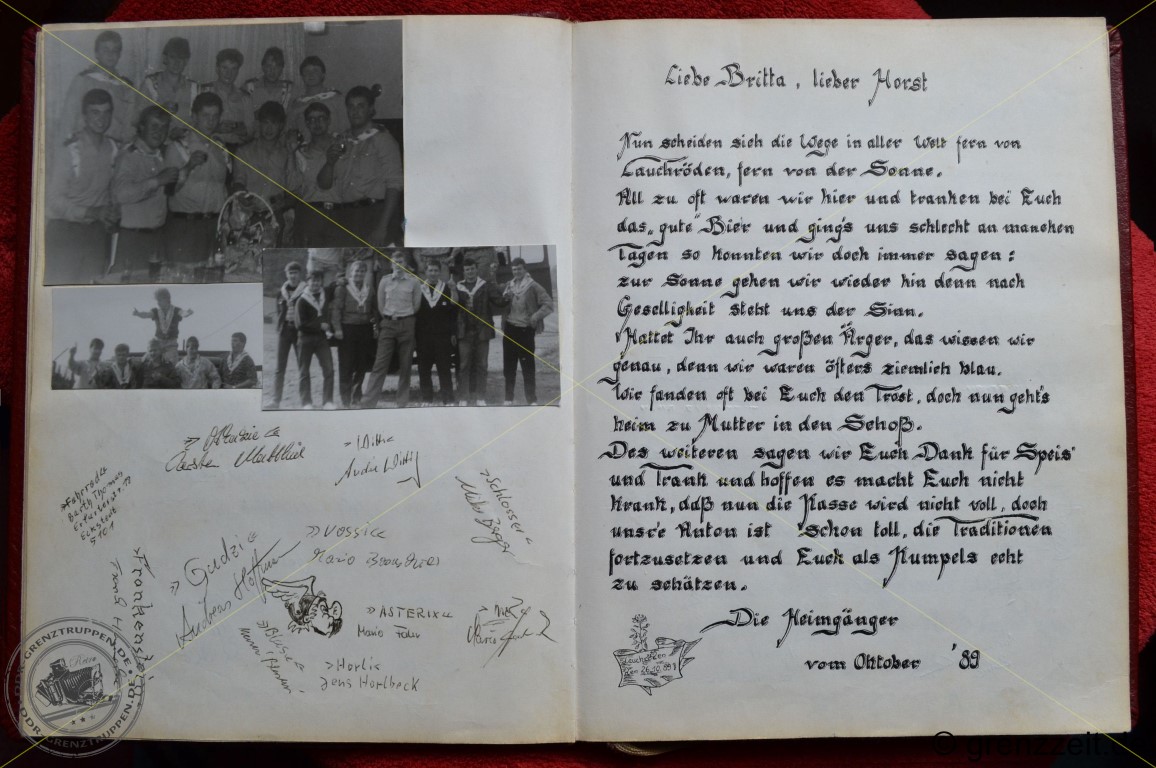 »Mattzie«
Carsten Matthiä
»Witti«
Andre Wittig
»Schlosser«
»Fahorad«
Barth Thomas
Erfurterstr. 17
Eckstedt
5101
»Frankenstein«
Frank
»Gudzi«
Andreas
»VOSSI«
Mario
»ASTERIX«
Mario
Mario
»Horli«
Jens Horlbeck
Liebe Britta, lieber Horst
Nun scheiden sich die Wege in aller Welt fern von
Lauchröden, fern von der Sonne.
All zu oft waren wir hier und tranken bei Euch
das „gute" Bier und ging's uns schlecht an manchen
Tagen so konnten wir doch immer sagen:
zur Sonne gehen wir wieder hin denn nach
Geselligkeit steht uns der Sinn.
Hattet Ihr auch großen Ärger, das wissen wir
genau, denn wir waren öfters ziemlich blau.
Wir fanden oft bei Euch den Trost, doch nun geht's
heim zu Mutter in den Schoß.
Des weiteren sagen wir Euch Dank für Speis'
und Trank und hoffen es macht Euch nicht
krank, daß nun die Kasse wird nicht voll, doch
uns're Anton ist schon toll, die Traditionen
fortzusetzen und Euch als Kumpels echt
zu schätzen.
Die Heimgänger
vom Oktober '89
Lauchröden
den 26.10.89
DDR-GRENZTRUPPEN.DE
Retro
DDR-GRENZTRUPPEN.DE
© grenzzeit.d